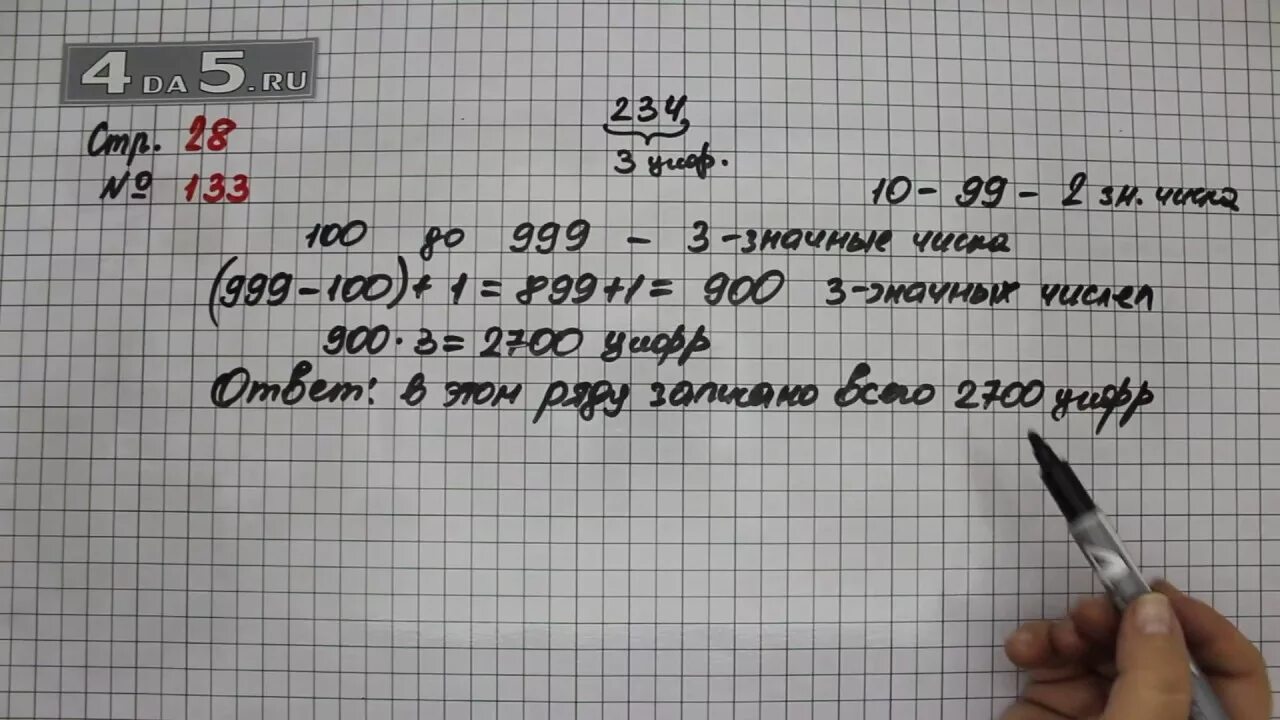 4DA5.RU
Стр. 28
№ 133
234
3 цифр.
10 - 99 - 2 зн. числа
100 до 999 - 3-значные числа
(999-100)+1=899+1=900 3-значных чисел
900·3=2700 цифр
Ответ: в этом ряду записано всего 2700 цифр